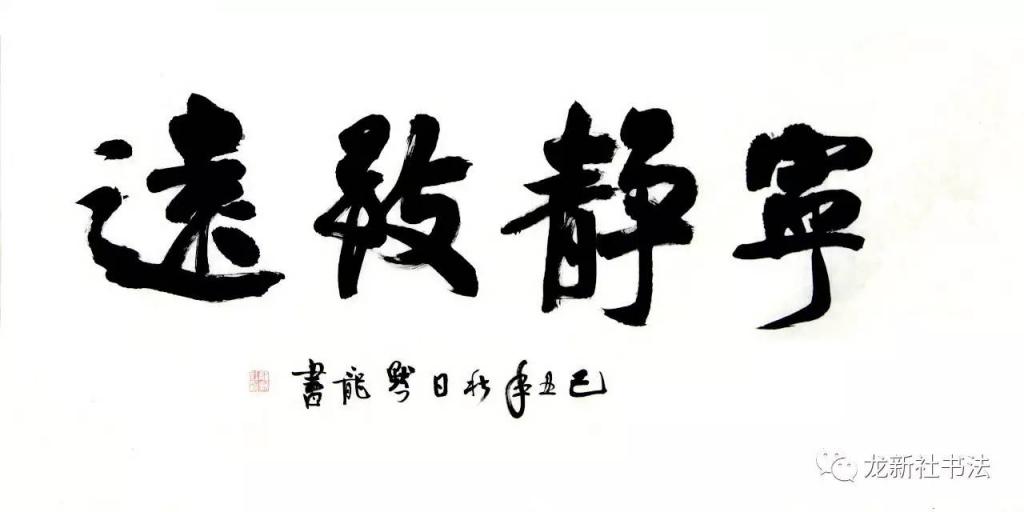 寧靜致遠
己丑年秋日 龍書
龙新社书法